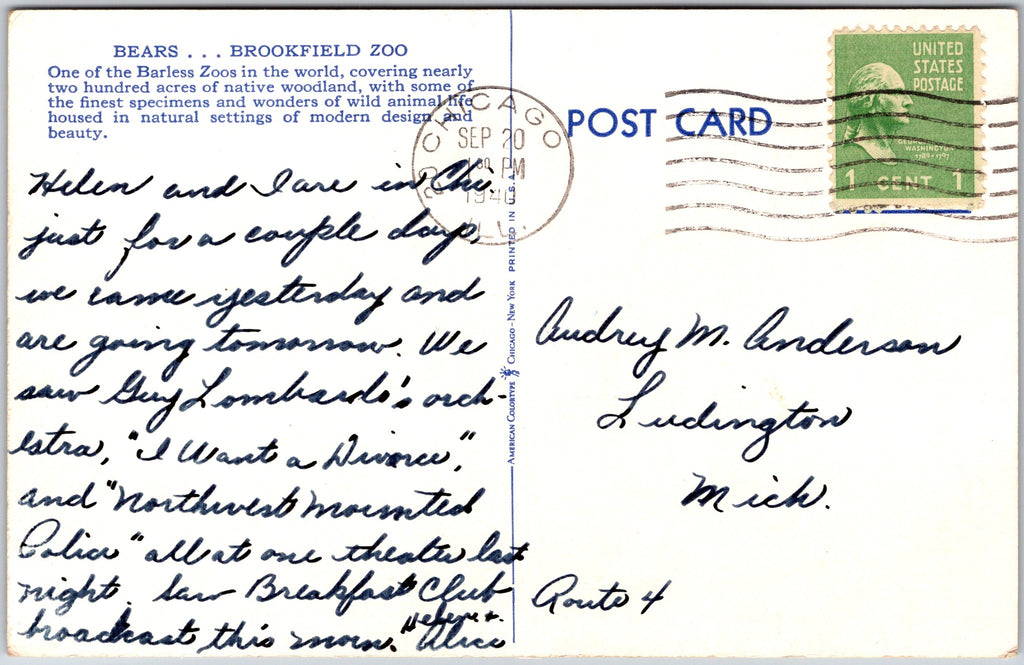 BEARS . . . BROOKFIELD ZOO
One of the Barless Zoos in the world, covering nearly
two hundred acres of native woodland, with some of
the finest specimens and wonders of wild animal life
housed in natural settings of modern design and
beauty.
Helen and I are in Chi.
just for a couple days,
we came yesterday and
are going tomorrow. We
saw Guy Lombardo's orch-
estra, "I Want a Divorce",
and "Northwest Mounted
Police" all at one theater last
night. Saw Breakfast Club
broadcast this morn."
Helene +
Alice
CHICAGO
SEP 20
PM
1940
ILL.
AMERICAN COLORTYPE CHICAGO - NEW YORK PRINTED IN U.S.A.
POST CARD
UNITED
STATES
POSTAGE
GEORGE
WASHINGTON
1789-1797
1 CENT 1
Audrey M. Anderson
Ludington
Mich.
Route 4